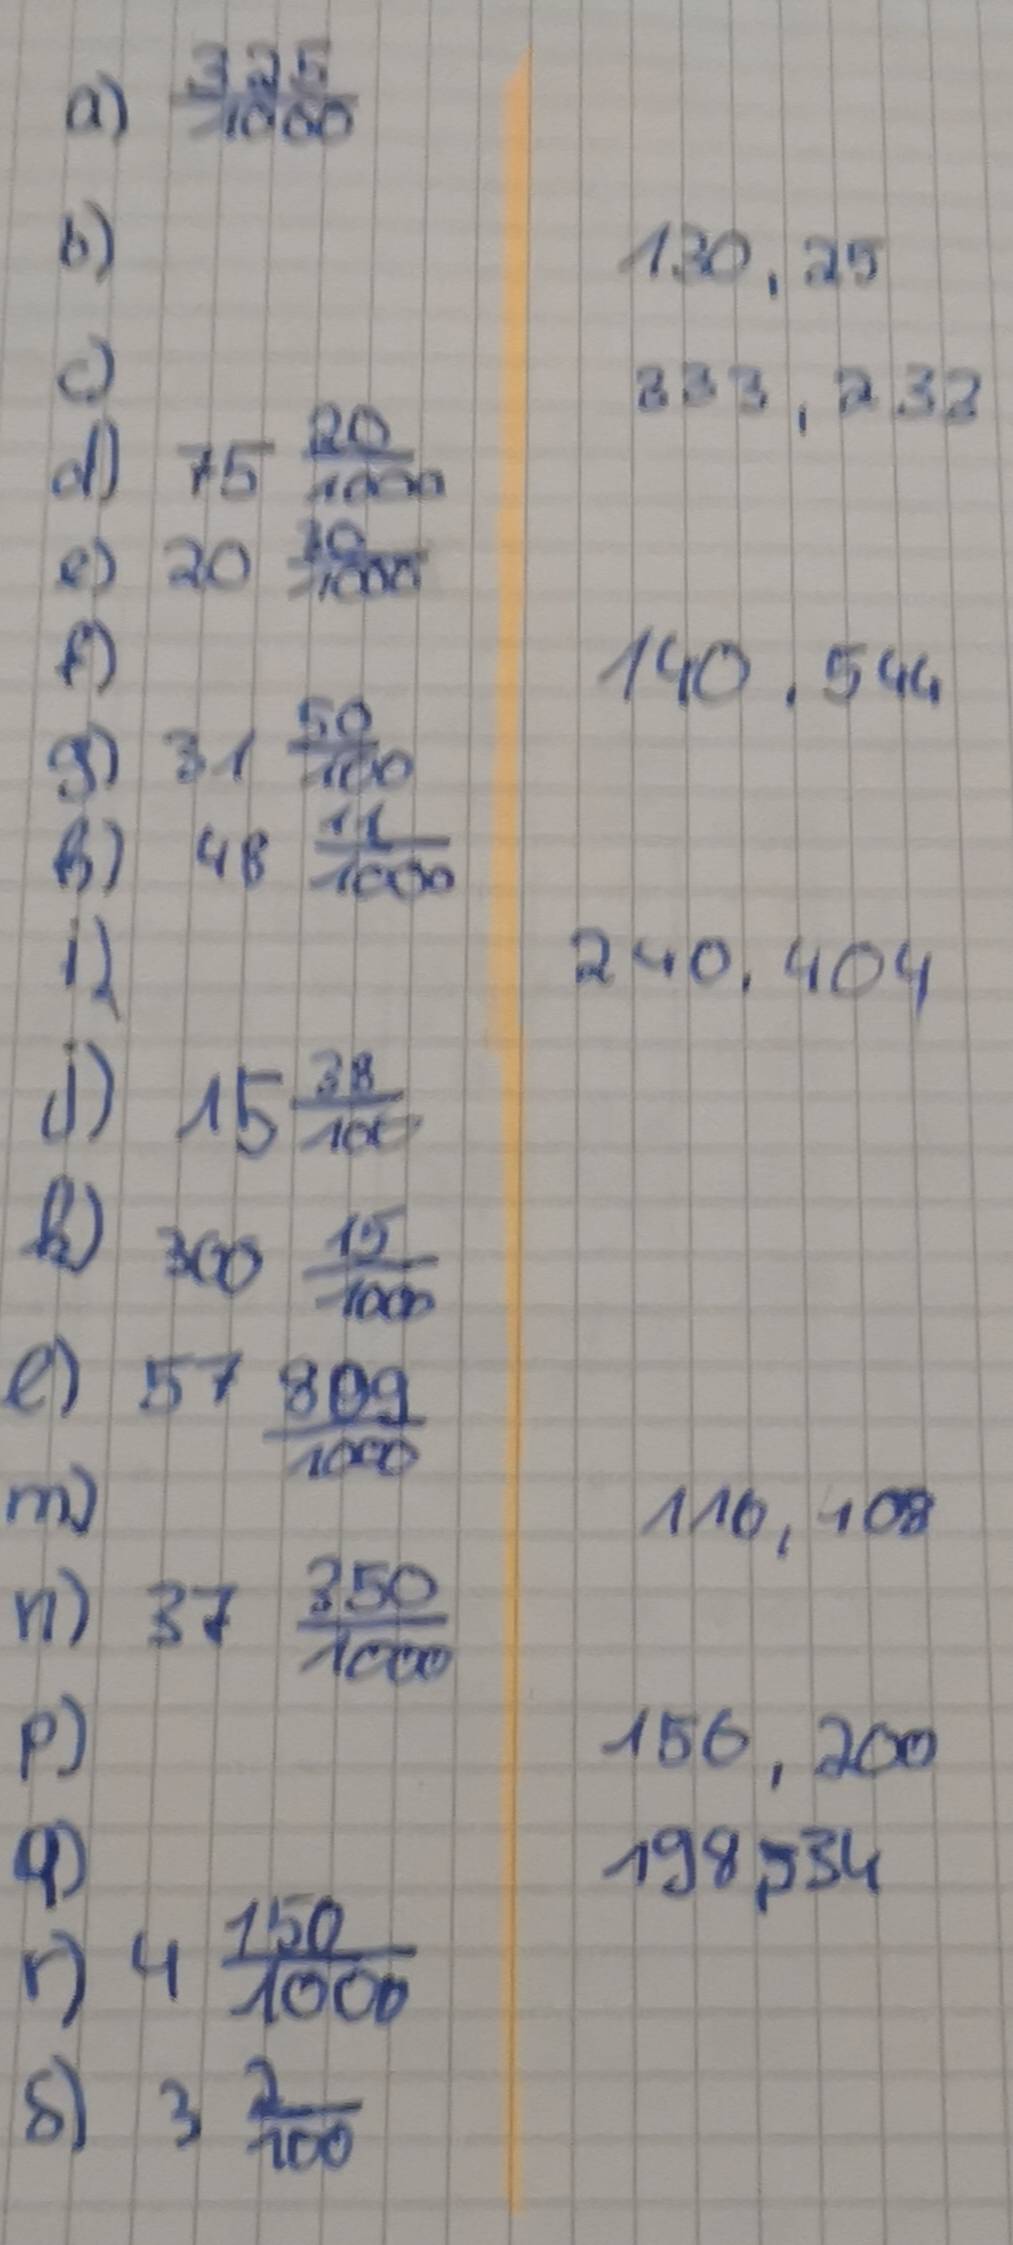 a) 325/1000
b) 130,25
c) 333,232
d) 75 20/1000
e) 20 30/1000
f) 140,544
g) 31 50/100
h) 48 11/1000
i) 240,404
j) 15 38/100
k) 300 15/1000
l) 57 809/1000
m) 110,108
n) 37 350/1000
p) 156,200
q) 198,534
r) 4 150/1000
s) 3 2/100